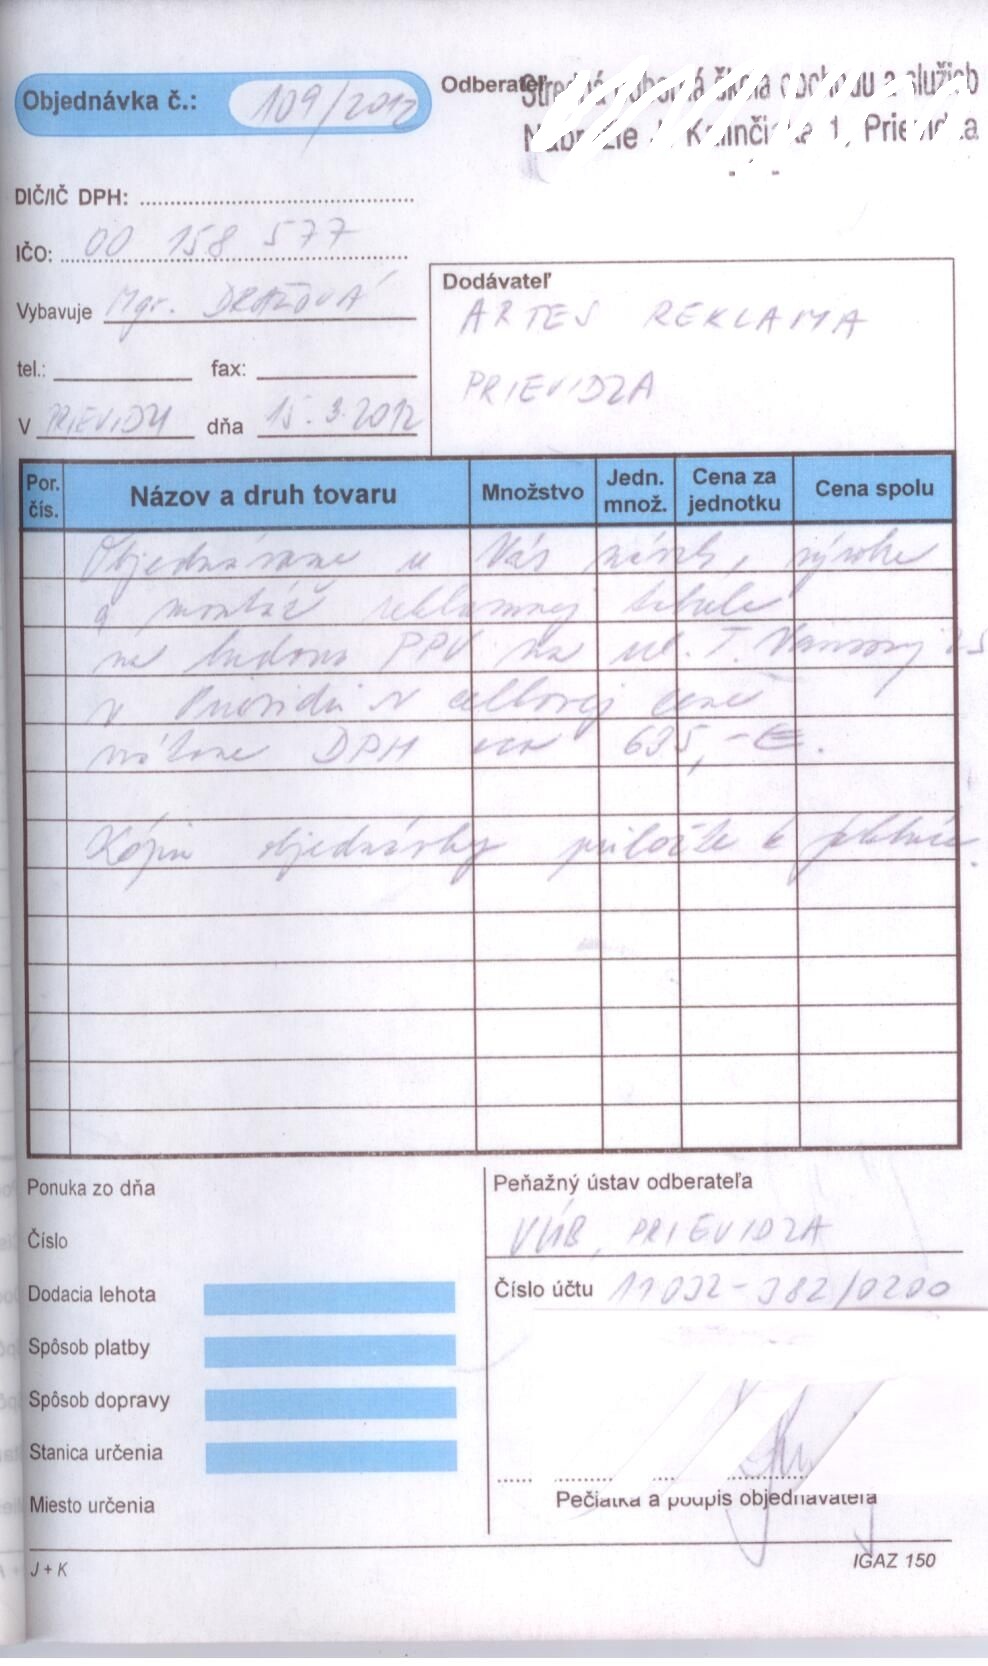 Objednávka č.: 109/2012
Odberateľ Stredná odborná škola obchodu a služieb
Nábrežie J. Kalinčiaka 1, Prievidza
DIČ/IČ DPH:
IČO: 00 158 577
Vybavuje Mgr. DRAŽOVÁ
tel.: fax:
V PRIEVIDZI dňa 15.3.2012
Dodávateľ
ARTES REKLAMA
PRIEVIDZA
Por. čís. Názov a druh tovaru Množstvo Jedn. množ. Cena za jednotku Cena spolu
Objednávame u Vás návrh, výrobu
a montáž reklamnej tabule
na budovu PPV na ul. T. Vansovej 25
v Prievidzi v celkovej cene
vrátane DPH 635,-€.
Kópiu objednávky priložte k faktúre.
Ponuka zo dňa
Číslo
Dodacia lehota
Spôsob platby
Spôsob dopravy
Stanica určenia
Miesto určenia
Peňažný ústav odberateľa
VÚB, PRIEVIDZA
Číslo účtu 11032-382/0200
Pečiatka a podpis objednávateľa
J + K
IGAZ 150